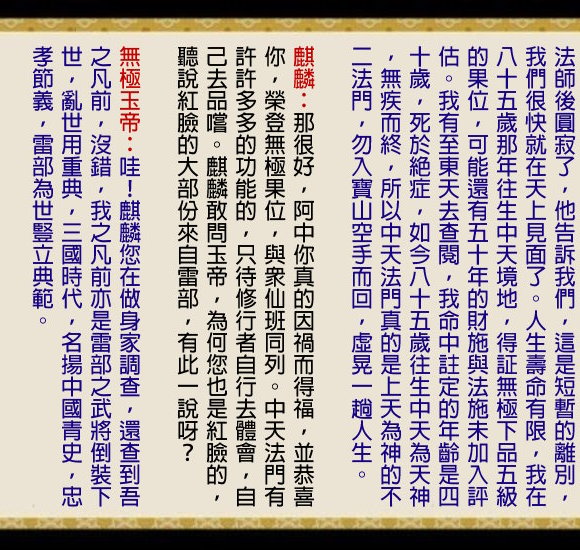 法師後圓寂了，他告訴我們，這是短暫的離別，
我們很快就在天上見面了。人生壽命有限，我在
八十五歲那年往生中天境地，得証無極下品五級
的果位，可能還有五十年的財施與法施未加入評
估。我有至東天去查閱，我命中註定的年齡是四
十歲，死於絕症，如今八十五歲往生中天為天神
，無疾而終，所以中天法門真的是上天為神的不
二法門，勿入寶山空手而回，虛晃一趟人生。
麒麟：那很好，阿中你真的因禍而得福，並恭喜
你，榮登無極果位，與眾仙班同列。中天法門有
許許多多的功能的，只待修行者自行去體會，自
己去品嚐。麒麟敢問玉帝，為何您也是紅臉的，
聽說紅臉的大部份來自雷部，有此一說呀？
無極玉帝：哇！麒麟您在做身家調查，還查到吾
之凡前，沒錯，我之凡前亦是雷部之武將倒裝下
世，亂世用重典，三國時代，名揚中國青史，忠
孝節義，雷部為世豎立典範。